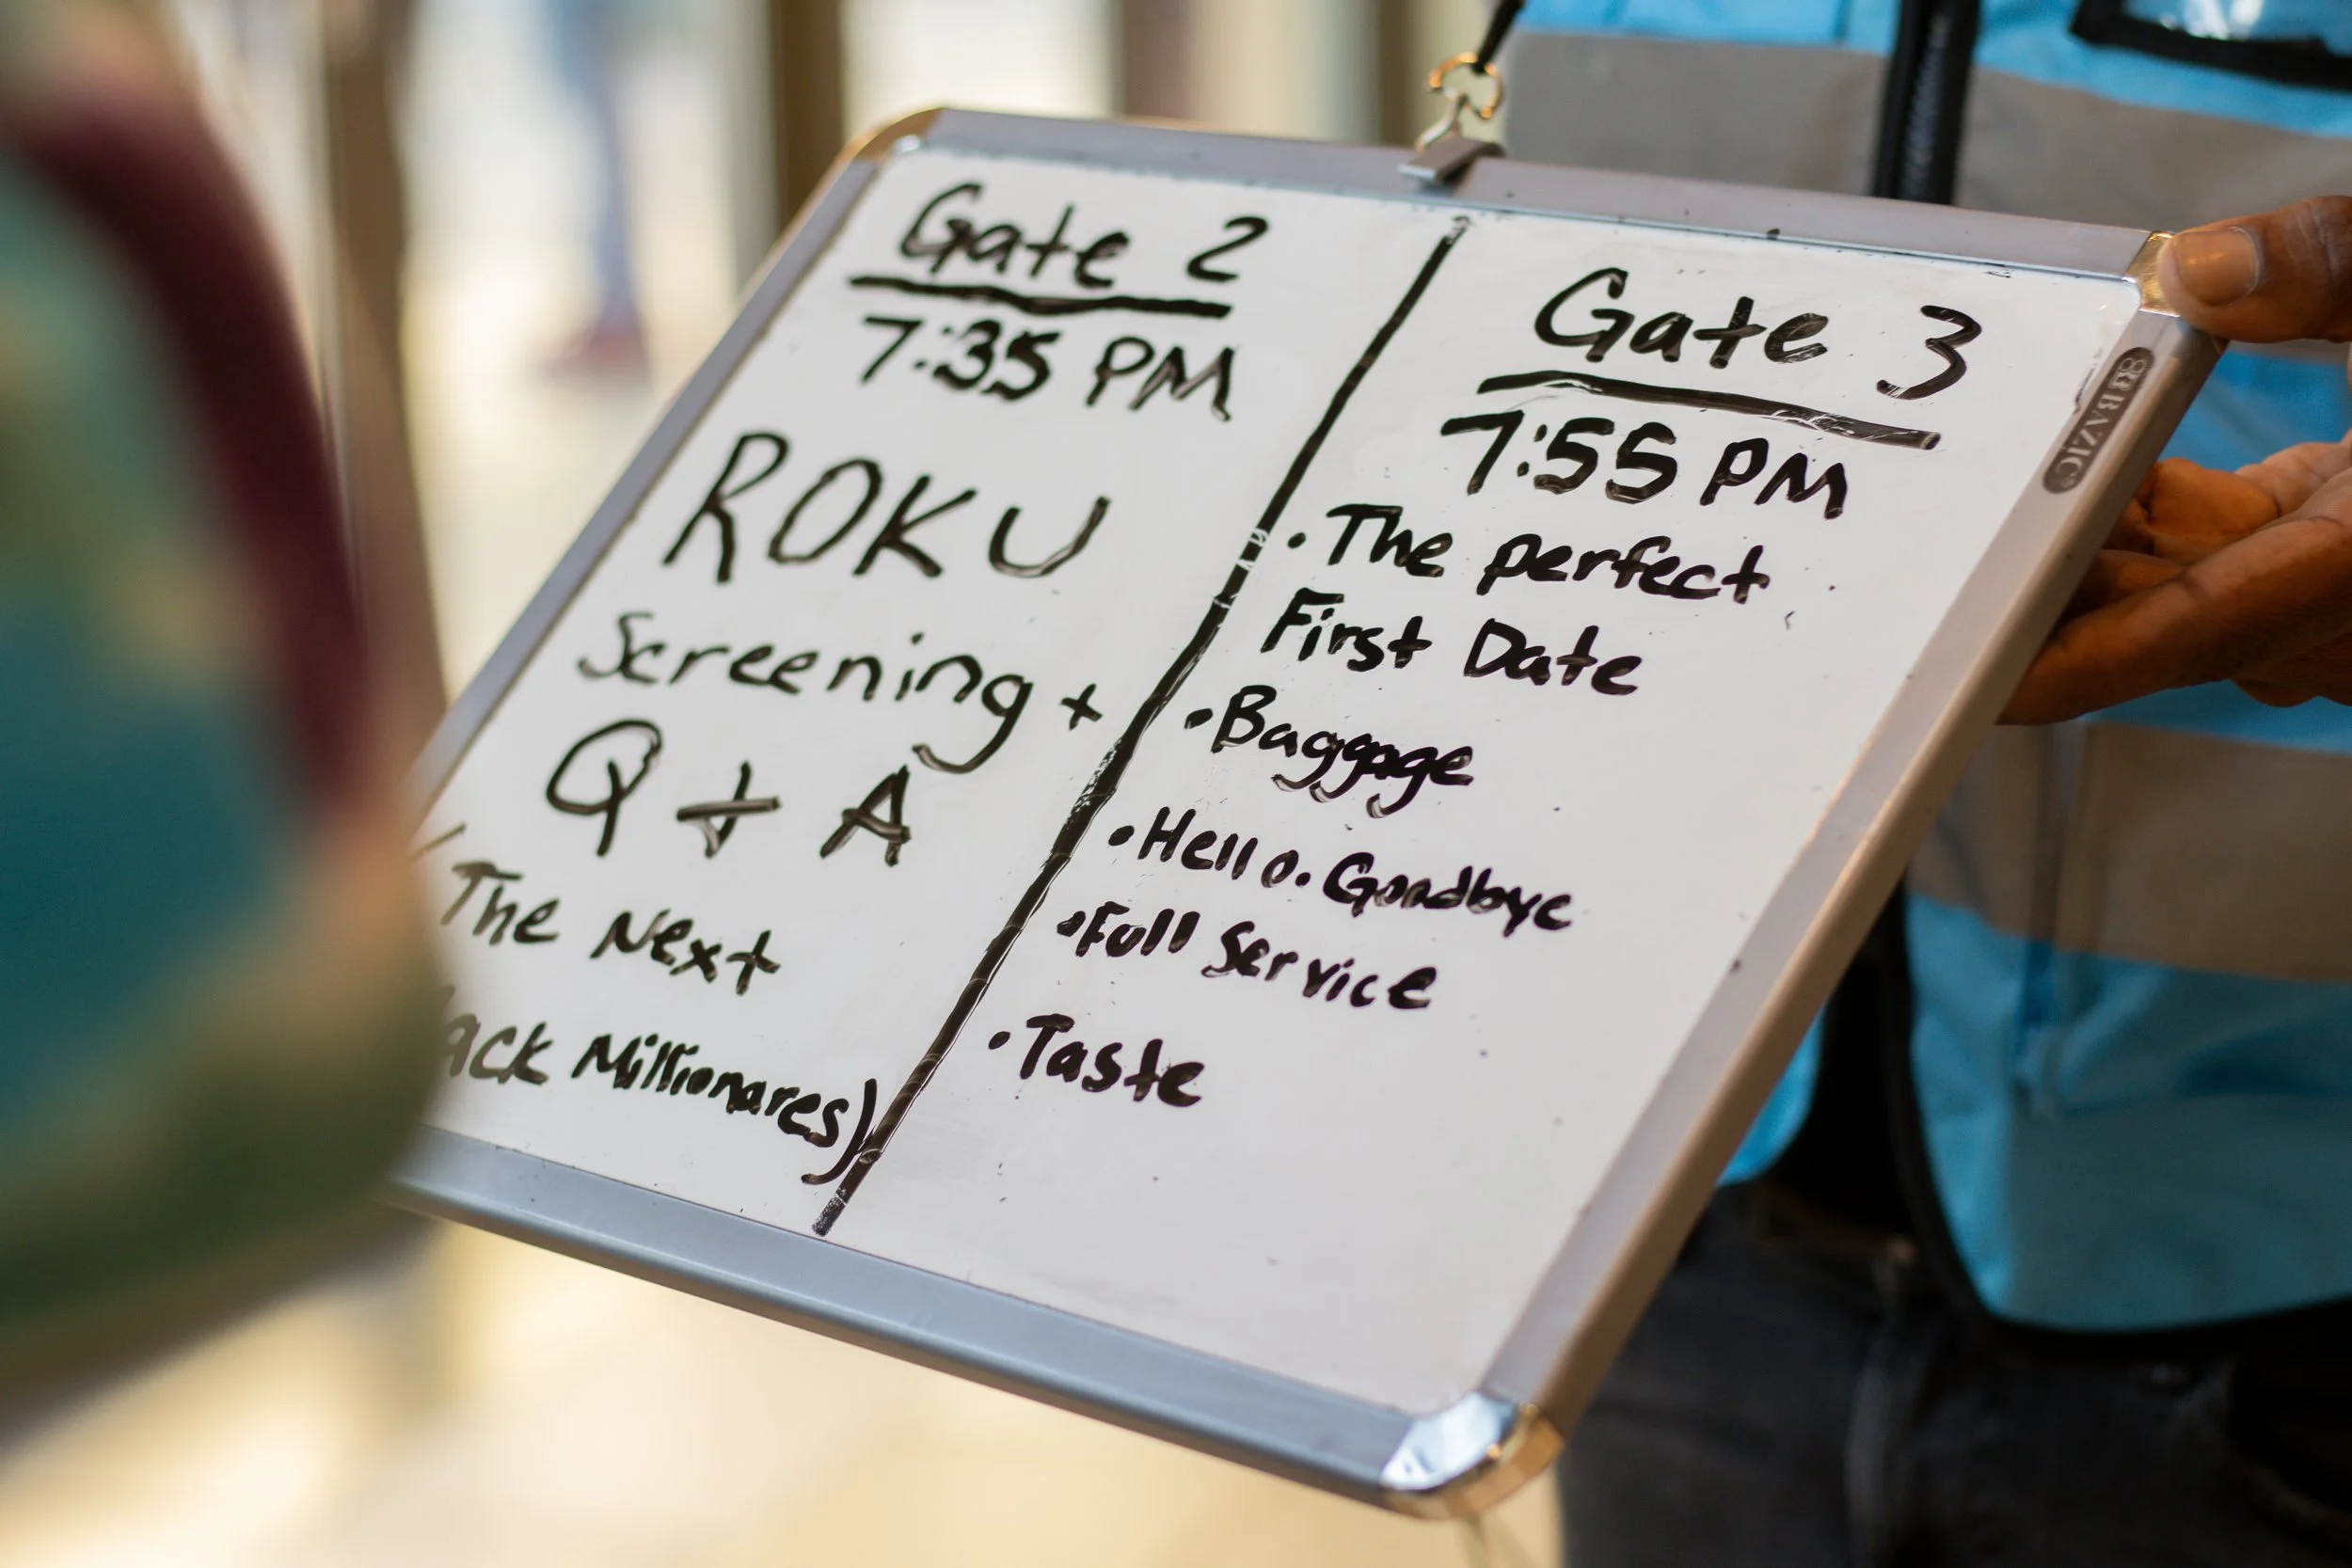 Gate 2
7:35 PM
ROKU
Screening +
Q + A
(The Next
Millionares)
Gate 3
7:55 PM
• The perfect
First Date
• Baggage
• Hello. Goodbye
• Full Service
• Taste
BAZIC